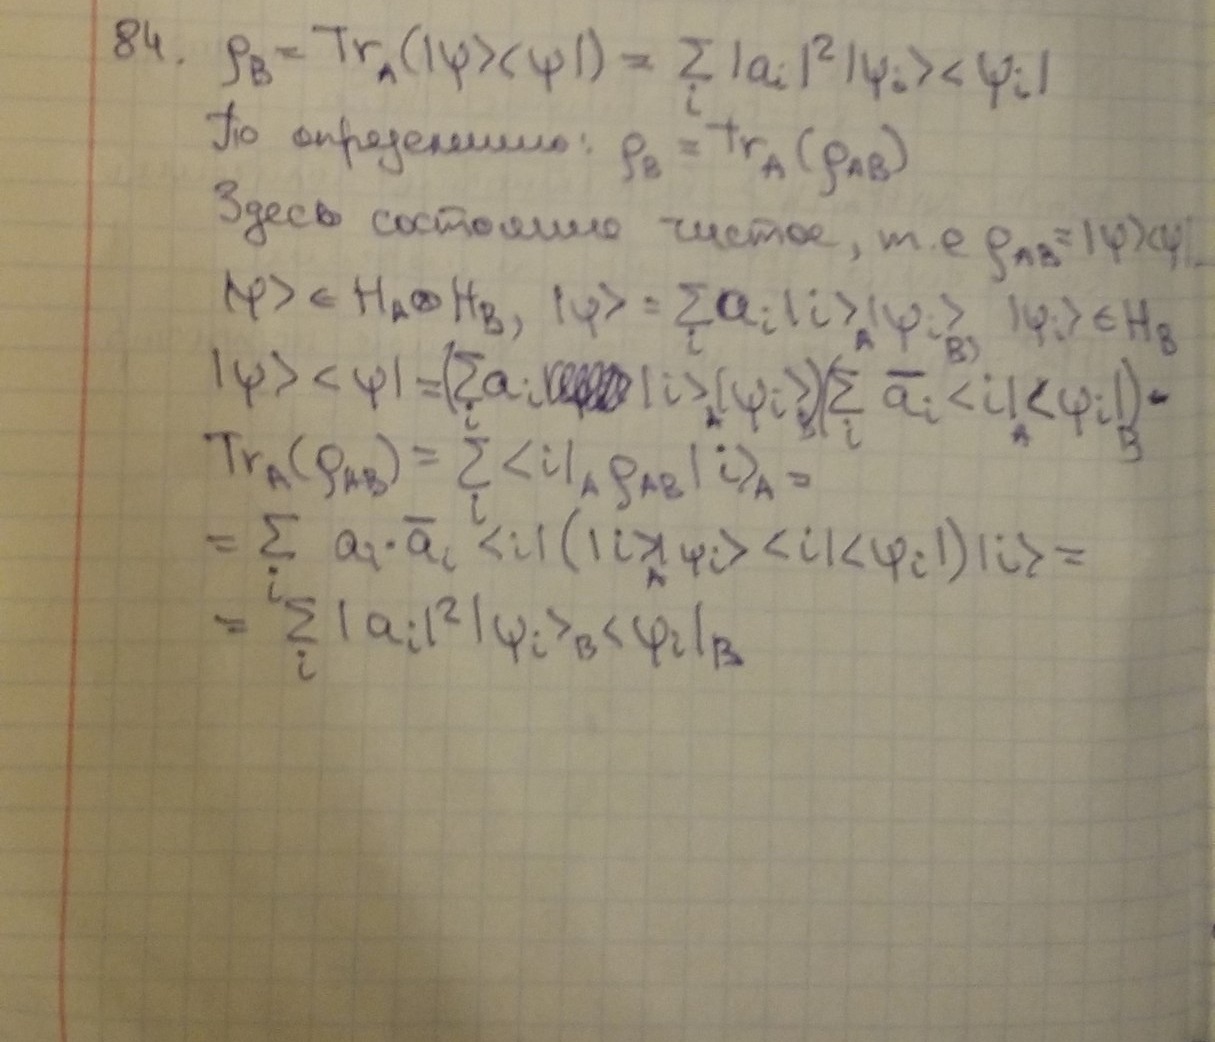 84. ρ_B = Tr_A(|ψ><ψ|) = Σ_i |a_i|²|ψ_i><ψ_i|
По определению: ρ_B = Tr_A(ρ_AB)
Здесь состояние чистое, т.е ρ_AB = |ψ><ψ|
|ψ> ∈ H_A ⊗ H_B, |ψ> = Σ_i a_i|i>_A|ψ_i>_B, |ψ_i> ∈ H_B
|ψ><ψ| = (Σ_i a_i |i>_A|ψ_i>_B)(Σ_i a̅_i <i|_A<ψ_i|_B) -
Tr_A(ρ_AB) = Σ_i <i|_A ρ_AB |i>_A =
= Σ_i a_i·a̅_i <i|(|i>_A|ψ_i><i|<ψ_i|)|i> =
= Σ_i |a_i|²|ψ_i>_B<ψ_i|_B